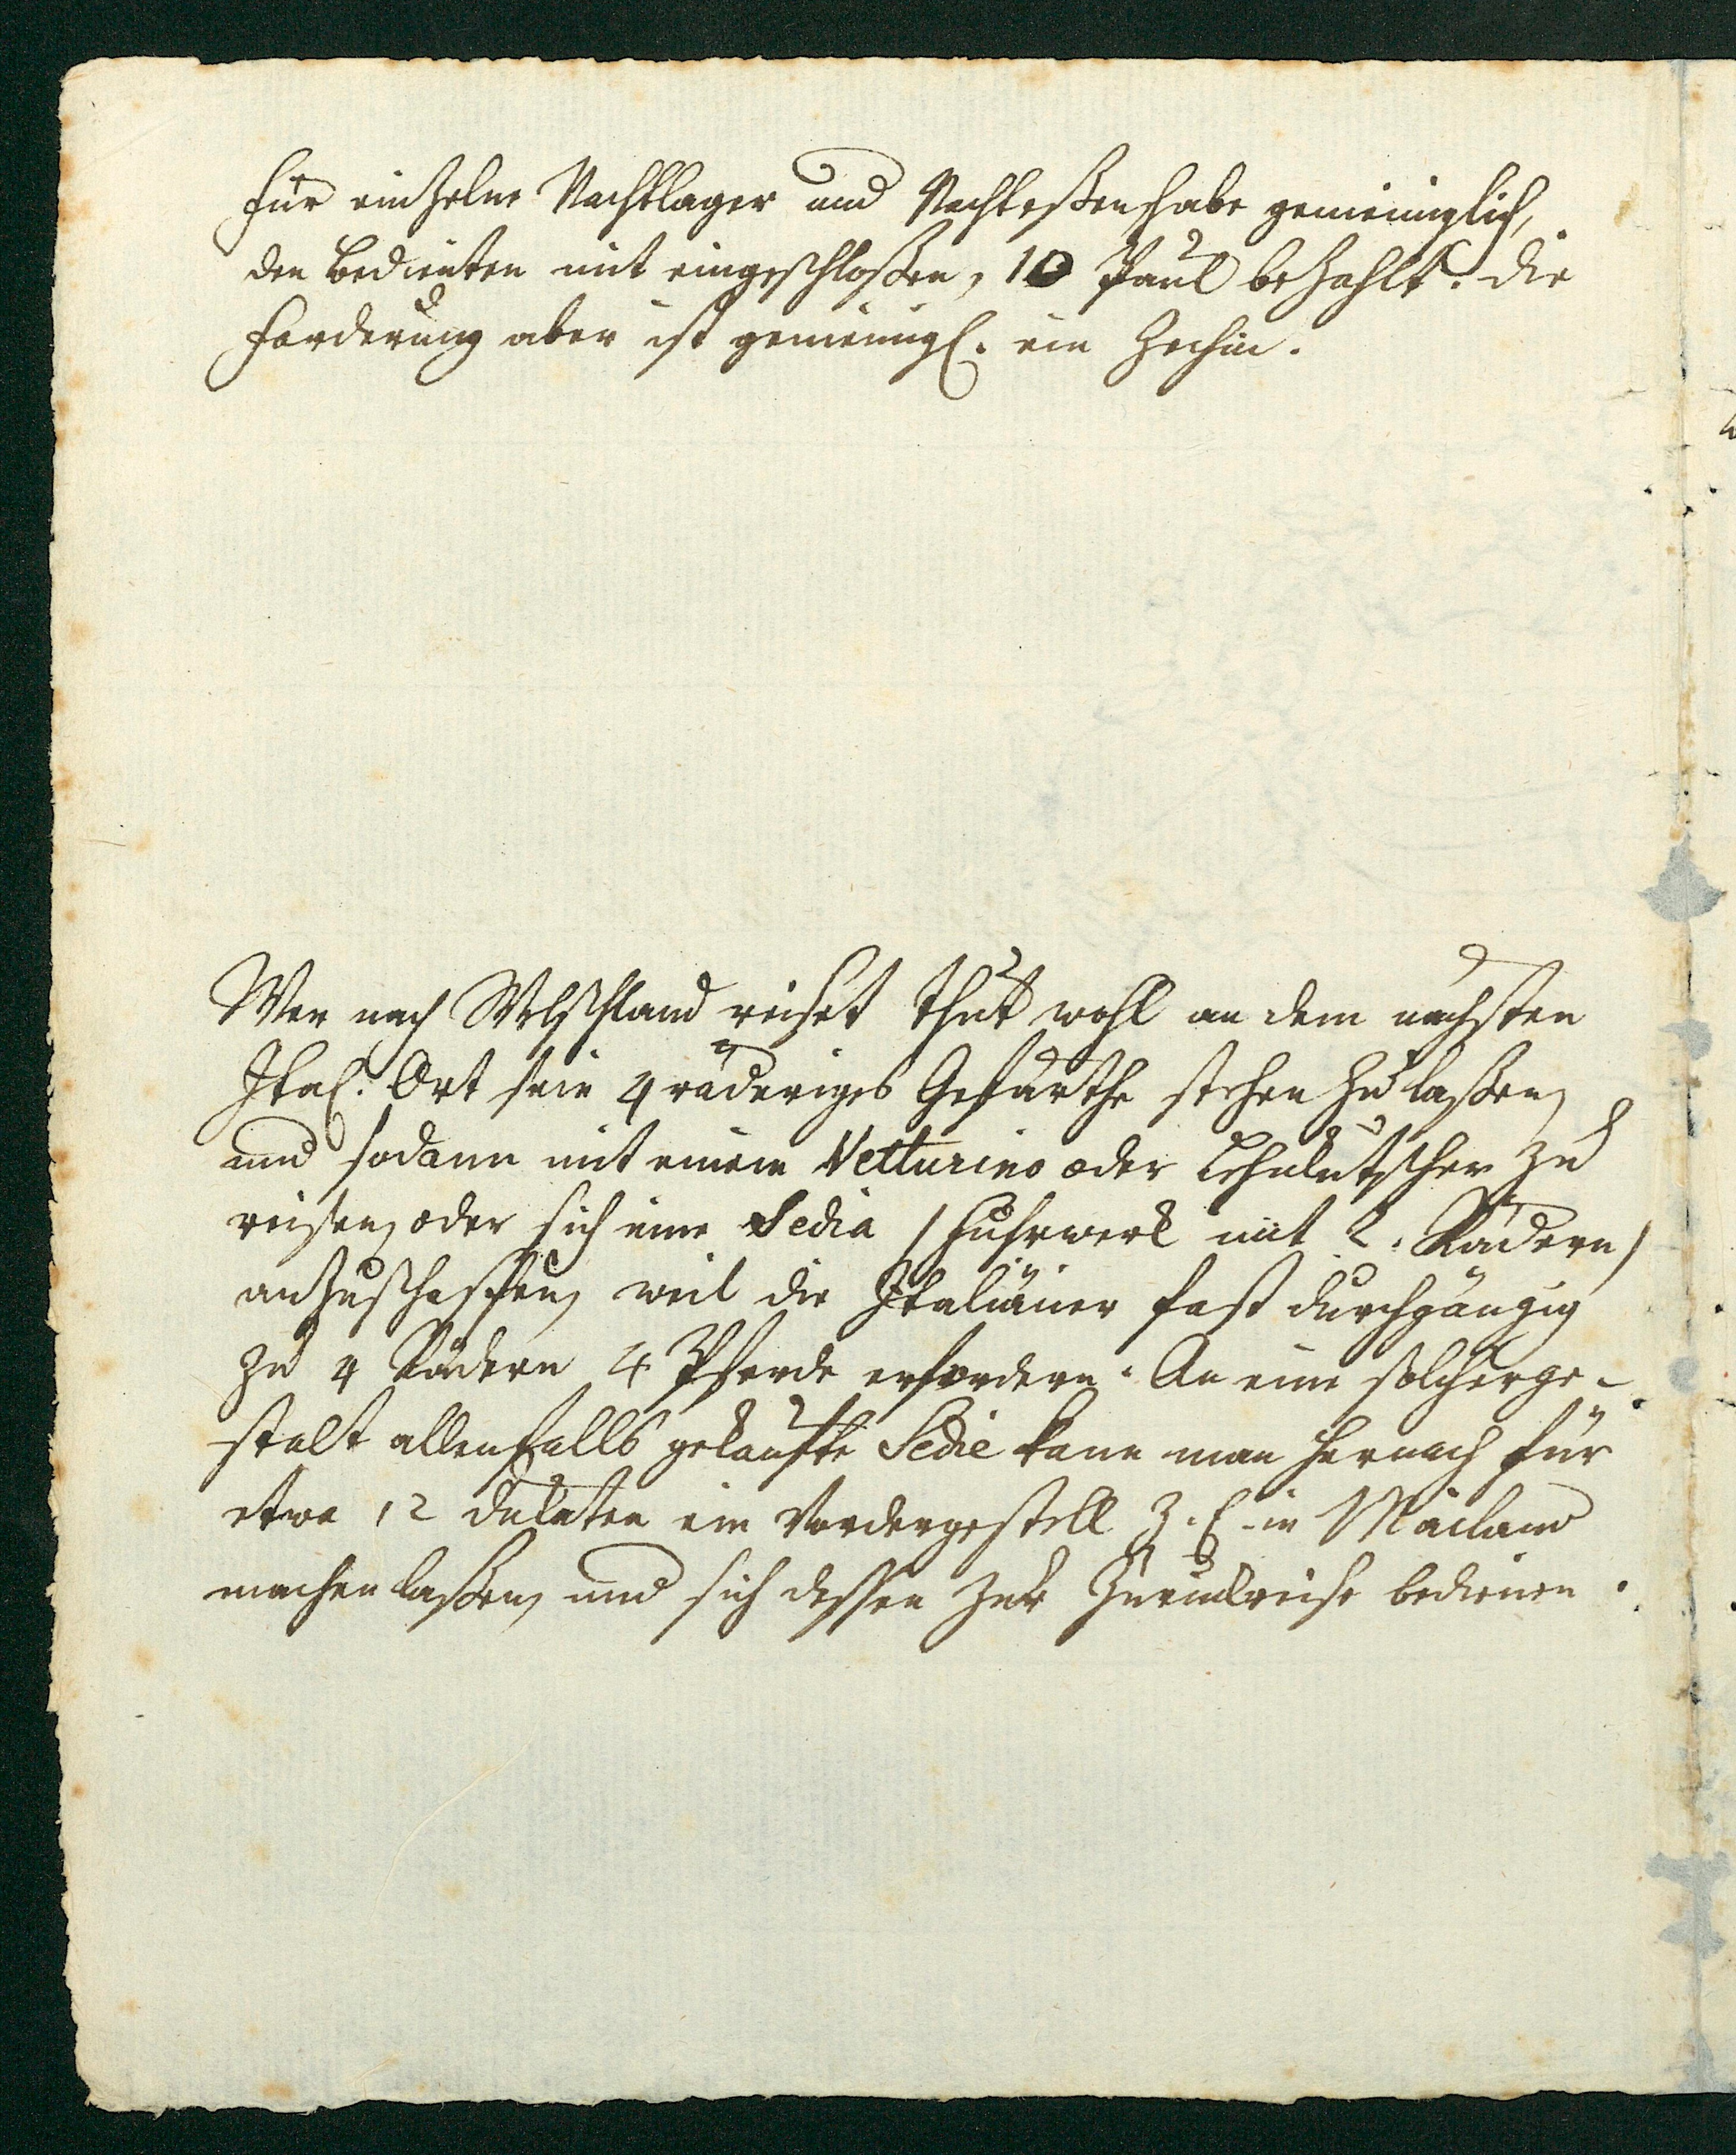 Für einzelne Nachtlager und Nachteßen habe gemeiniglich,
den Bedienten mit eingeschloßen, 10 Paul bezahlt. die
Forderung aber ist gemeinigl. ein Zechin.
Wer nach Welschland reiset thut wohl an dem nächsten
Ital. Ort sein 4 räderiges Gefärthe stehen zu laßen,
und sodann mit einem Vetturino oder Lehnkutscher zu
reisen, oder sich eine Sedia /Fuhrwerk mit 2. Rädern/
anzuschaffen, weil die Italiäner fast durchgängig
zu 4 Rädern 4 Pferde erfordern. An eine solcherge-
stalt allenfalls gekaufte Sedie kann man hernach für
etwa 12 Dukaten ein Vordergestell z. E. in Mailand
machen laßen, und sich dessen zur Zurückreise bedienen.